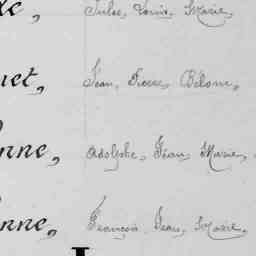 Jules, Louis, Marie,
Jean, Pierre,
nne, Adolphe, Jean, Marie,
nne, François, Jean, Marie,